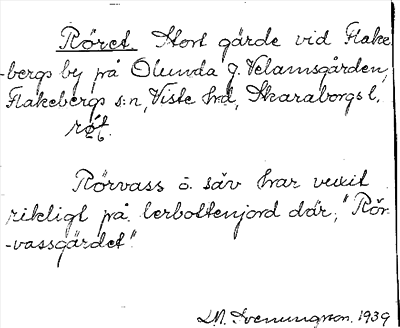 Röret. Stort gärde vid Flake
-bergs by på Olunda g. Velamsgården,
Flakebergs s:n, Viste hrd, Skaraborgs l.
Rörvass o. säv har vuxit
rikligt på lerbottenjord där, "Rör
-vassgärdet".
L.M. Svenungsson. 1939